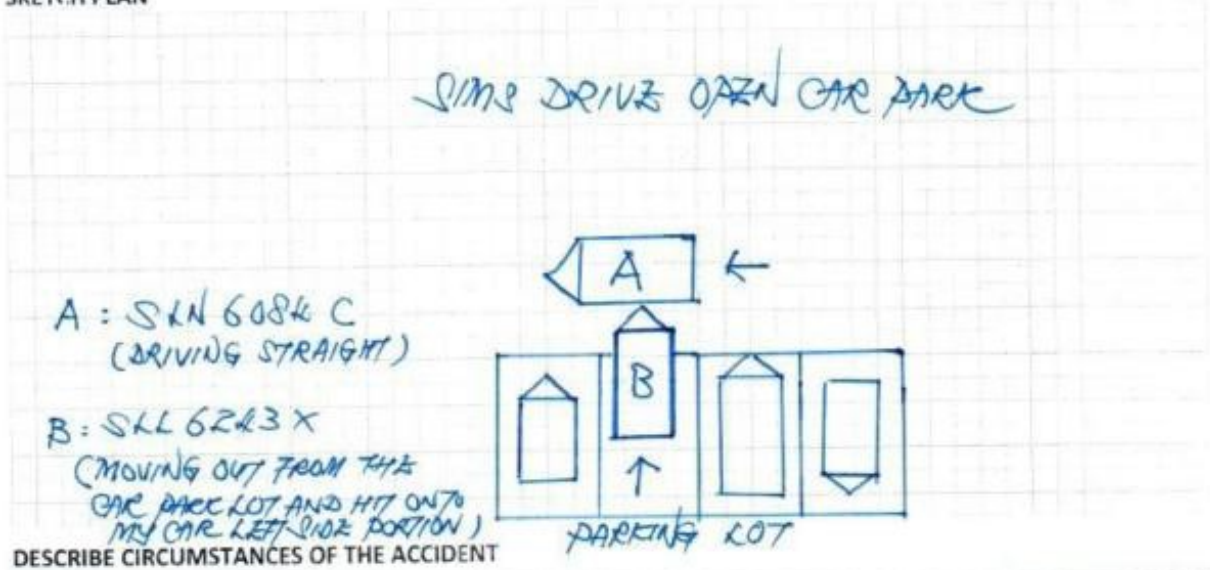 SKETCH PLAN
SIMS DRIVE OPEN CAR PARK
A
A : SLN 6084 C
(DRIVING STRAIGHT)
B
B : SLL 6243 X
(MOVING OUT FROM THE
CAR PARK LOT AND HIT ONTO
MY CAR LEFT SIDE PORTION)
PARKING LOT
DESCRIBE CIRCUMSTANCES OF THE ACCIDENT